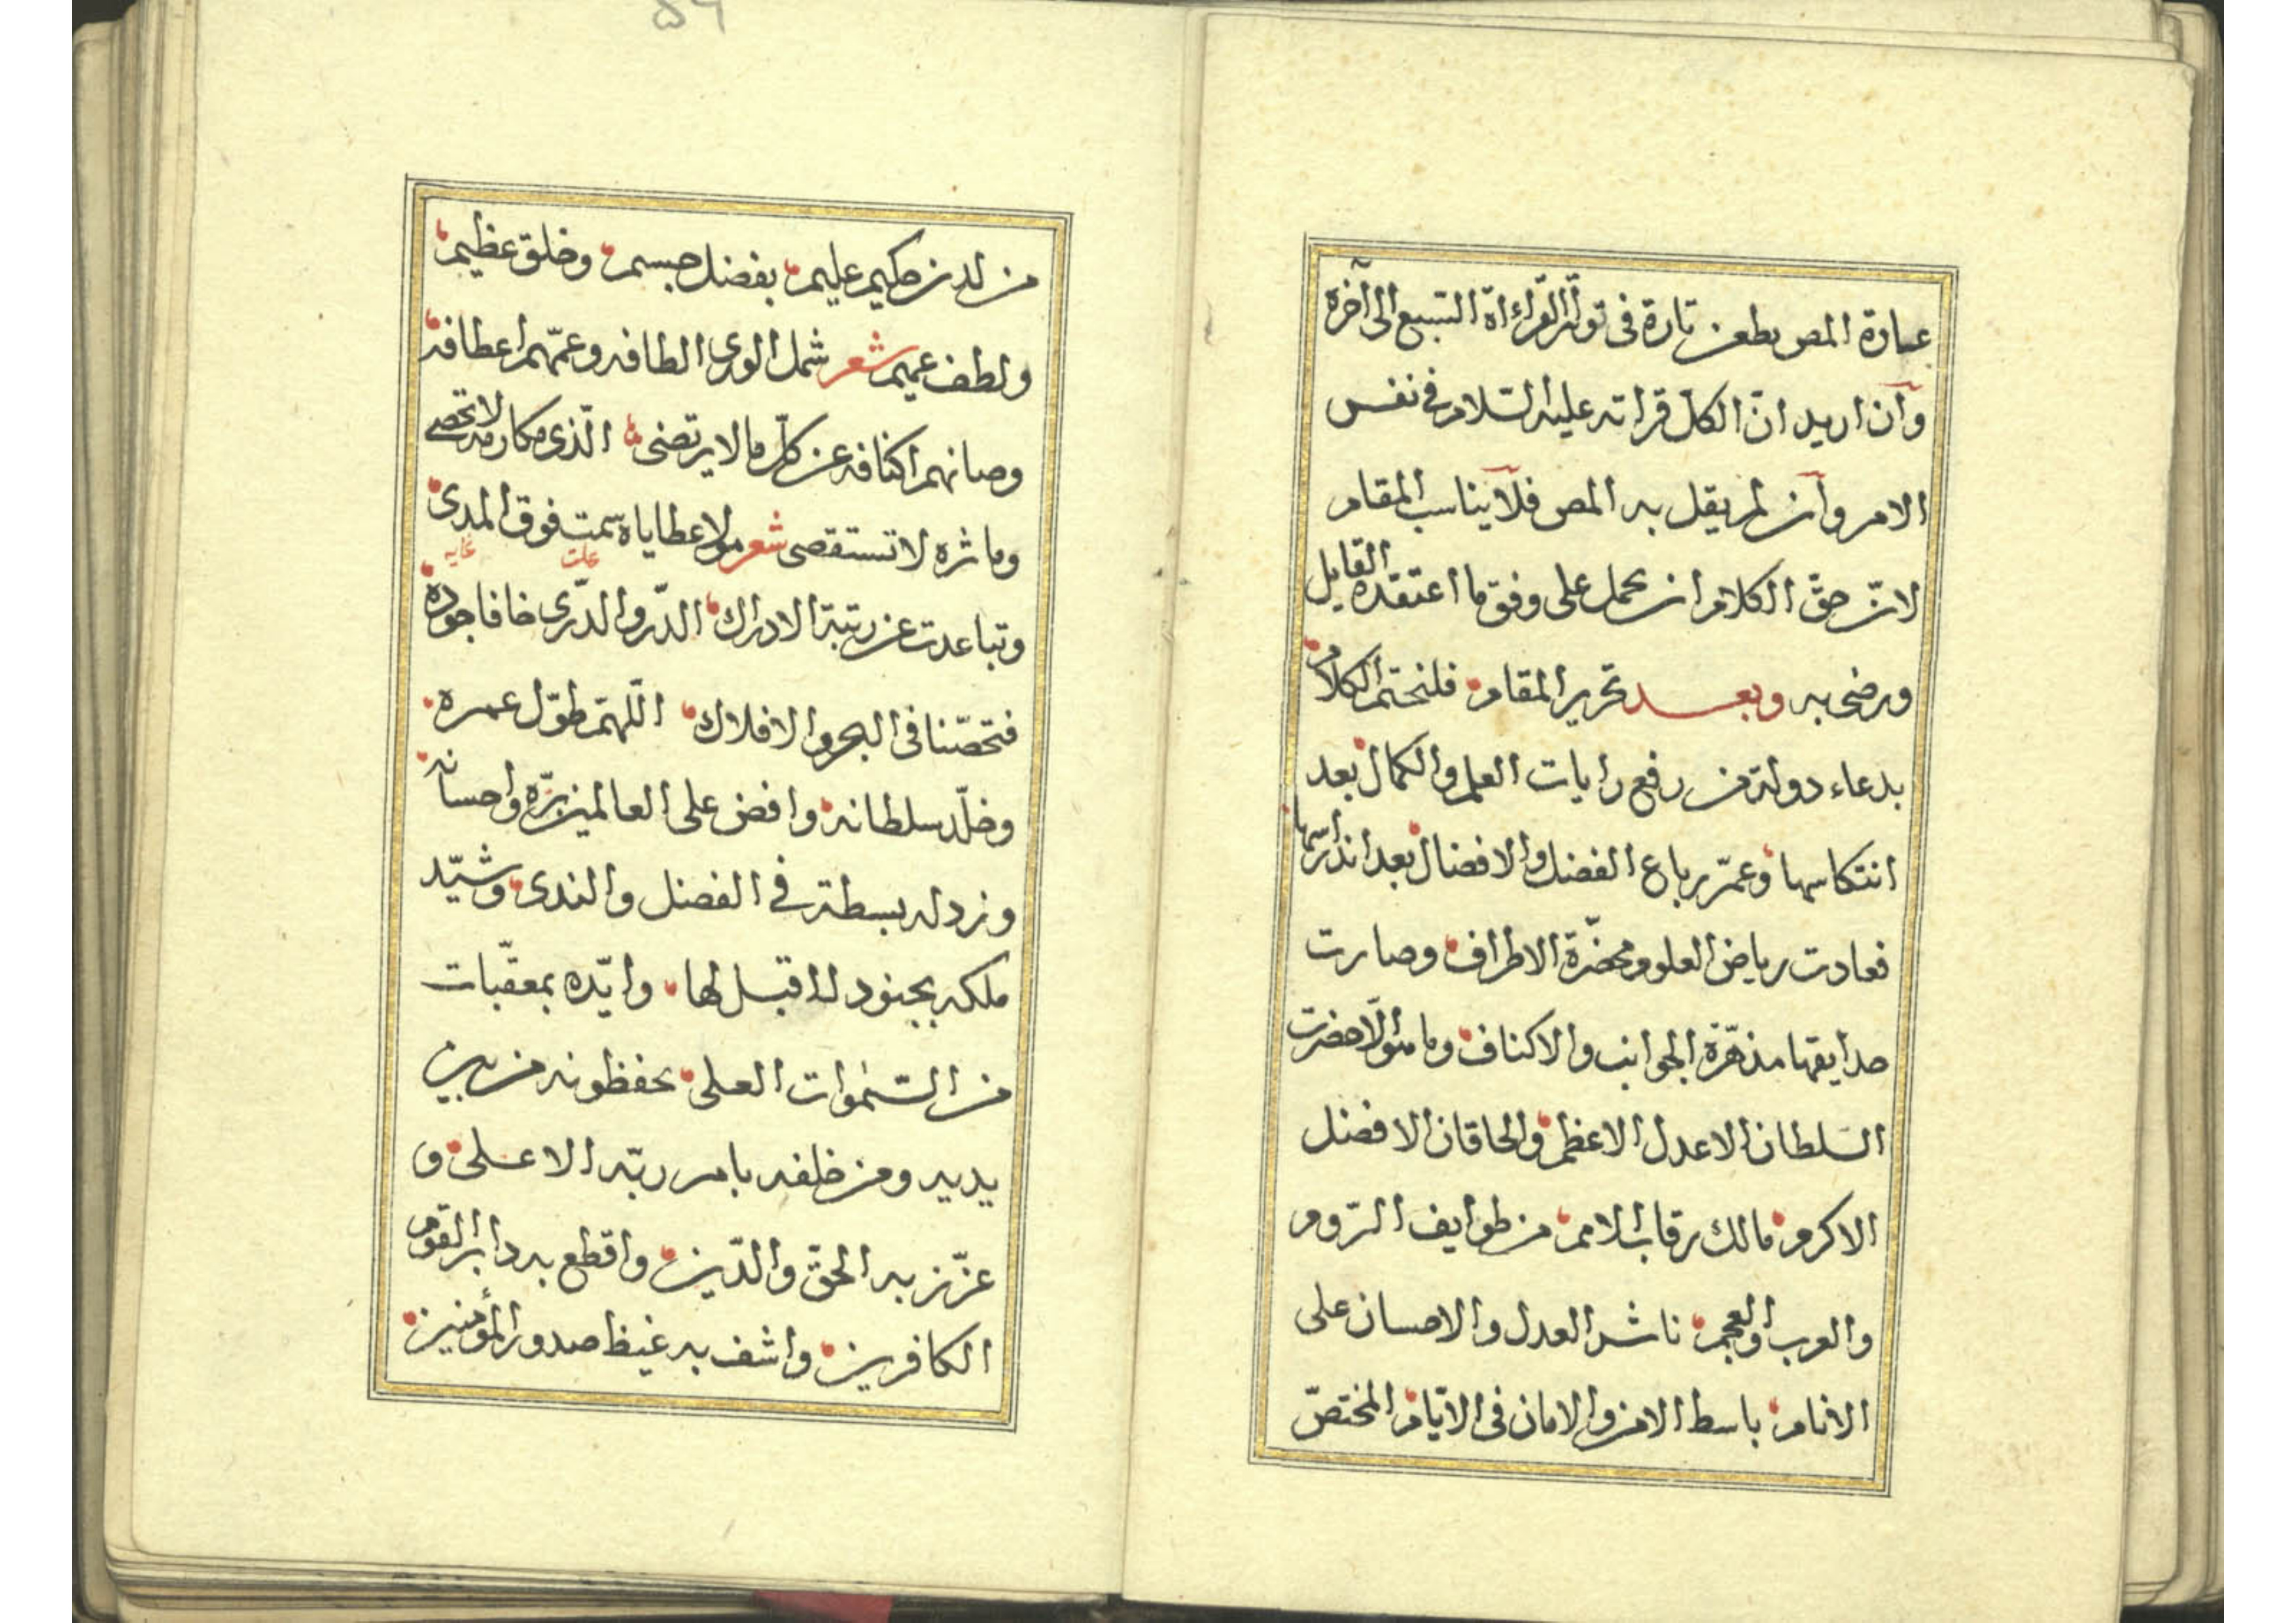 عبارة المص بطعن تارة فى تواتر القراءاة السبع الى آخره
وان اريد ان الكل قراته عليه السّلام فى نفس
الامر وان لم يقل به المص فلا يناسب المقام
لانّ حقّ الكلام ان يحمل على وفق ما اعتقده القايل
ورضى به وبعد تحرير المقام فلنختم الكلام
بدعاء دولة من رفع رايات العلم والكمال بعد
انتكاسها وعمّر رباع الفضل والافضال بعد اندراسها
فعادت رياض العلوم مخضرّة الاطراف وصارت
حدايقها مزهرّة الجوانب والاكناف وما هو الّا حضرت
السّلطان الاعدل الاعظم والخاقان الافضل
الاكرم مالك رقاب الامم من طوايف الرّوم
والعرب والعجم ناشر العدل والاحسان على
الانام باسط الامن والامان فى الايّام المختصّ
۵۹
من لدن حكيم عليم بفضل جسيم وخلق عظيم
ولطف عميم شعر شمل الورى الطافه وعمّهم اعطافه
وصانهم اكنافه عن كلّ ما لا يرتضى الّذى مكارمه لا تحصى
وماثره لا تستقصى شعر مولا عطاياه سمت فوق المدى
علت غايه
وتباعدت عن رتبة الادراك الدّر والدّرى خافا جوده
فتحصّنا فى البحر والافلاك اللّهمّ طوّل عمره
وخلّد سلطانه وافض على العالمين برّه واحسانه
وزد له بسطة فى الفضل والندى وشيّد
ملكه بجنود لا قبل لها وايّده بمعقّبات
من السّموات العلى يحفظونه من بين
يديه ومن خلفه بامر ربّه الاعلى و
عزّز به الحقّ والدّين واقطع به دابر القوم
الكافرين واشف به غيظ صدور المؤمنين